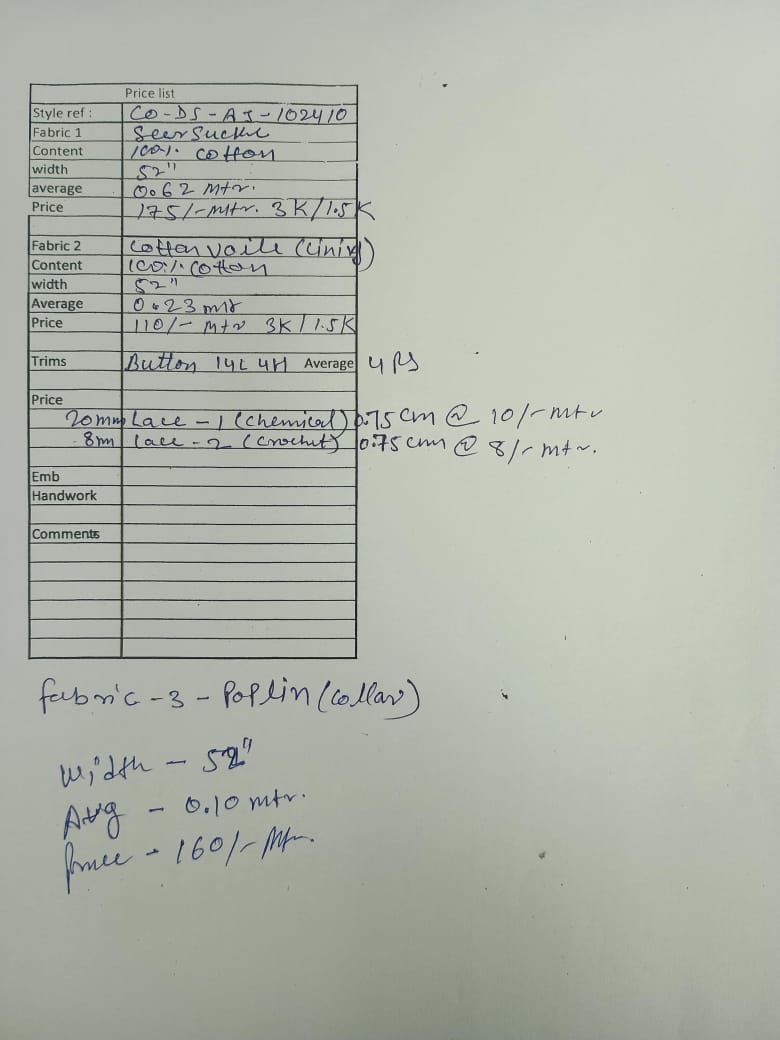 Price list
Style ref : CO-DS-AJ-102410
Fabric 1 Seersucke
Content 100% cotton
width 52"
average 0.62 mtr.
Price 175/- mtr. 3K/1.5K
Fabric 2 Cotton voile (lining)
Content 100% cotton
width 52"
Average 0.23 mtr
Price 110/- mtr 3K/1.5K
Trims Button 14L 4H Average 4 PS
Price
20mm Lace - 1 (chemical) 0.75 cm @ 10/- mtr
8m lace - 2 (crochet) 0.75 cm @ 8/- mtr.
Emb
Handwork
Comments
fabric - 3 - Poplin (collar)
Width - 52"
Avg - 0.10 mtr.
Price - 160/- Mtr.